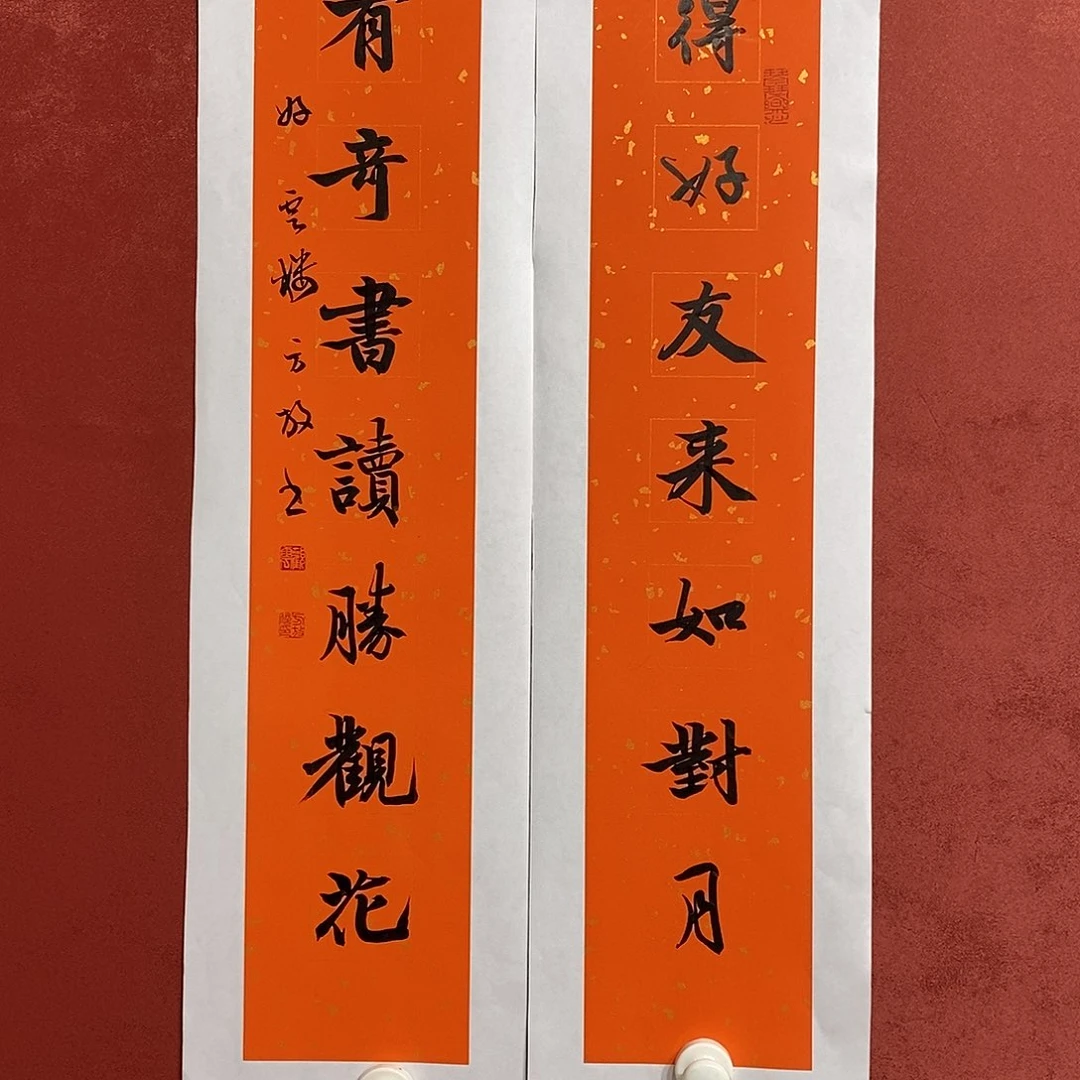 得好友来如對月
有奇書讀勝觀花
好雲樓方放书